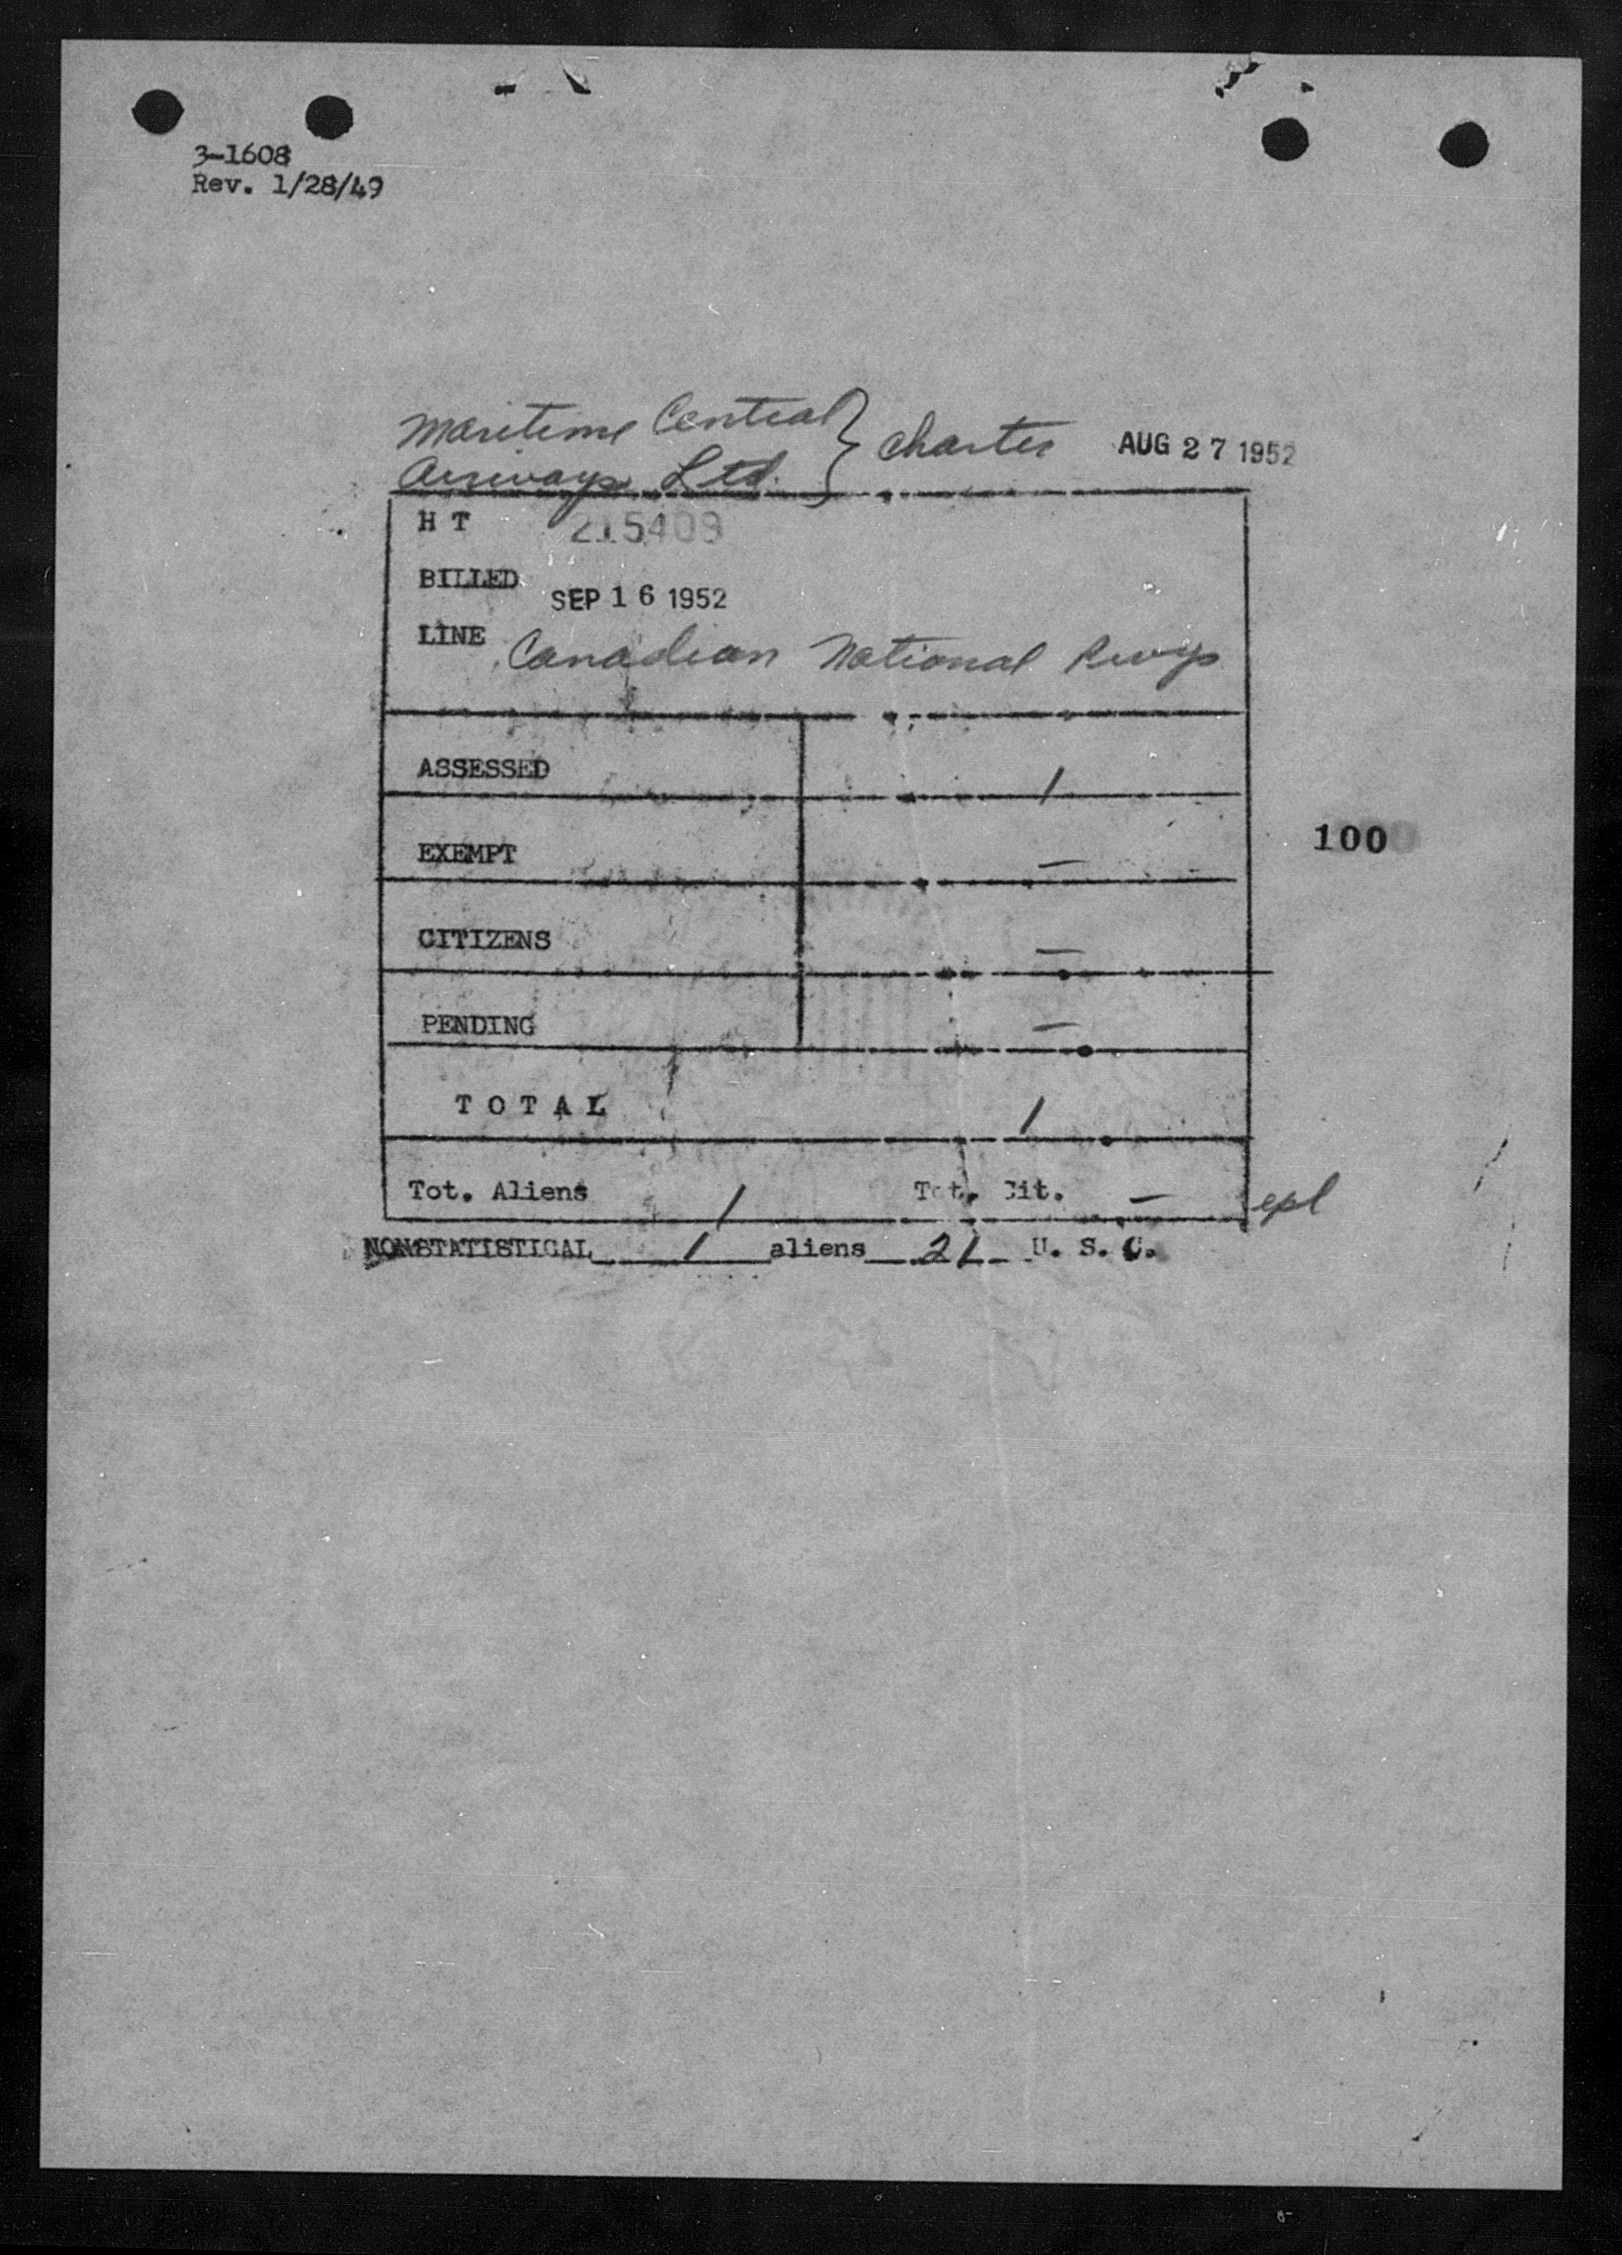 3-1608
Rev. 1/28/49
Maritime Central } Charter AUG 27 1952
Airways Ltd.
H T 215409
BILLED SEP 16 1952
LINE Canadian National Rwys
ASSESSED 1
EXEMPT —
100
CITIZENS —
PENDING —
T O T A L 1
Tot. Aliens 1 Tot. Cit. — epl
NONSTATISTICAL 1 aliens 21 U. S. C.